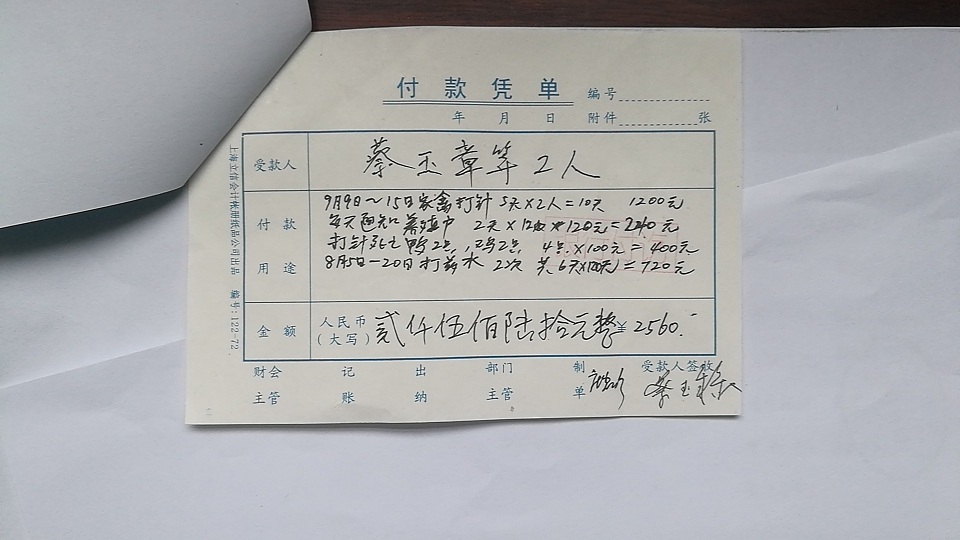 付款凭单
编号
年 月 日
附件 张
受款人 蔡玉章等2人
付款用途
9月9日～15日家禽打针 5天×2人=10天 1200元
每天通知 2天× 120元=240元
打针死亡鸭2只, 2只 4只×100元=400元
8月5日-20日打药水 2次 共6天×120元=720元
金额 人民币(大写) 贰仟伍佰陆拾元整 ¥2560.-
财会主管 记账 出纳 部门主管 制单 受款人签收
蔡玉章
上海立信会计帐册纸品公司出品 编号:122-72